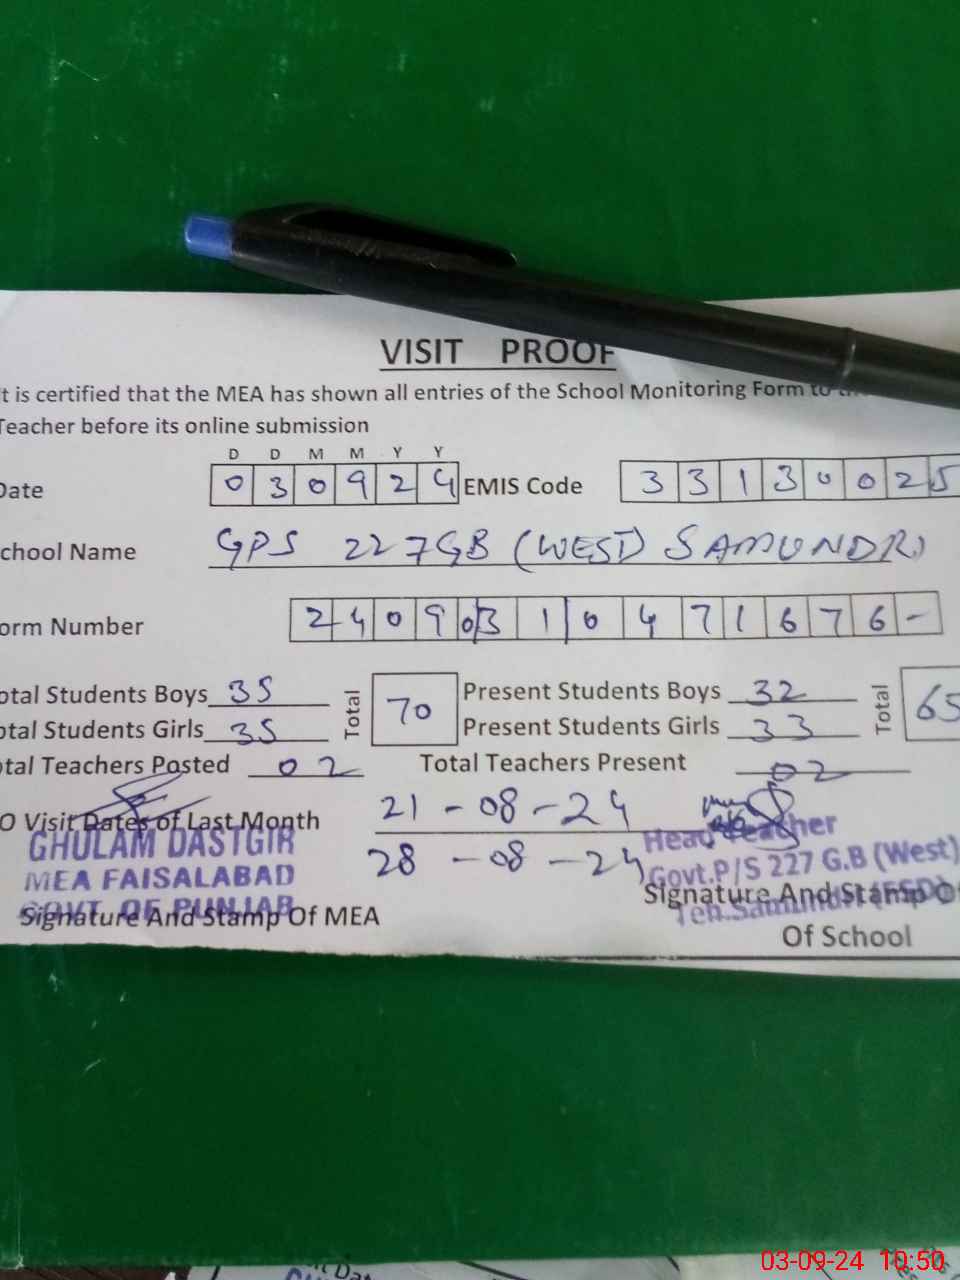 VISIT PROOF
t is certified that the MEA has shown all entries of the School Monitoring Form to
Teacher before its online submission
D D M M Y Y
Date 0 3 0 9 2 4 EMIS Code 3 3 1 3 0 0 2 5
chool Name GPS 227GB (WEST) SAMUNDRI
orm Number 2 4 0 9 03 1 0 4 7 1 6 7 6 -
otal Students Boys 35 Total 70 Present Students Boys 32 Total 65
otal Students Girls 35 Present Students Girls 33
otal Teachers Posted 02 Total Teachers Present 02
O Visit Dates of Last Month 21-08-24
28-08-24
GHULAM DASTGIR
MEA FAISALABAD
GOVT. OF PUNJAB
Signature And Stamp Of MEA
Head Teacher
Govt.P/S 227 G.B (West)
Teh.Samundri (FSD)
Signature And Stamp O
Of School
03-09-24 10:50